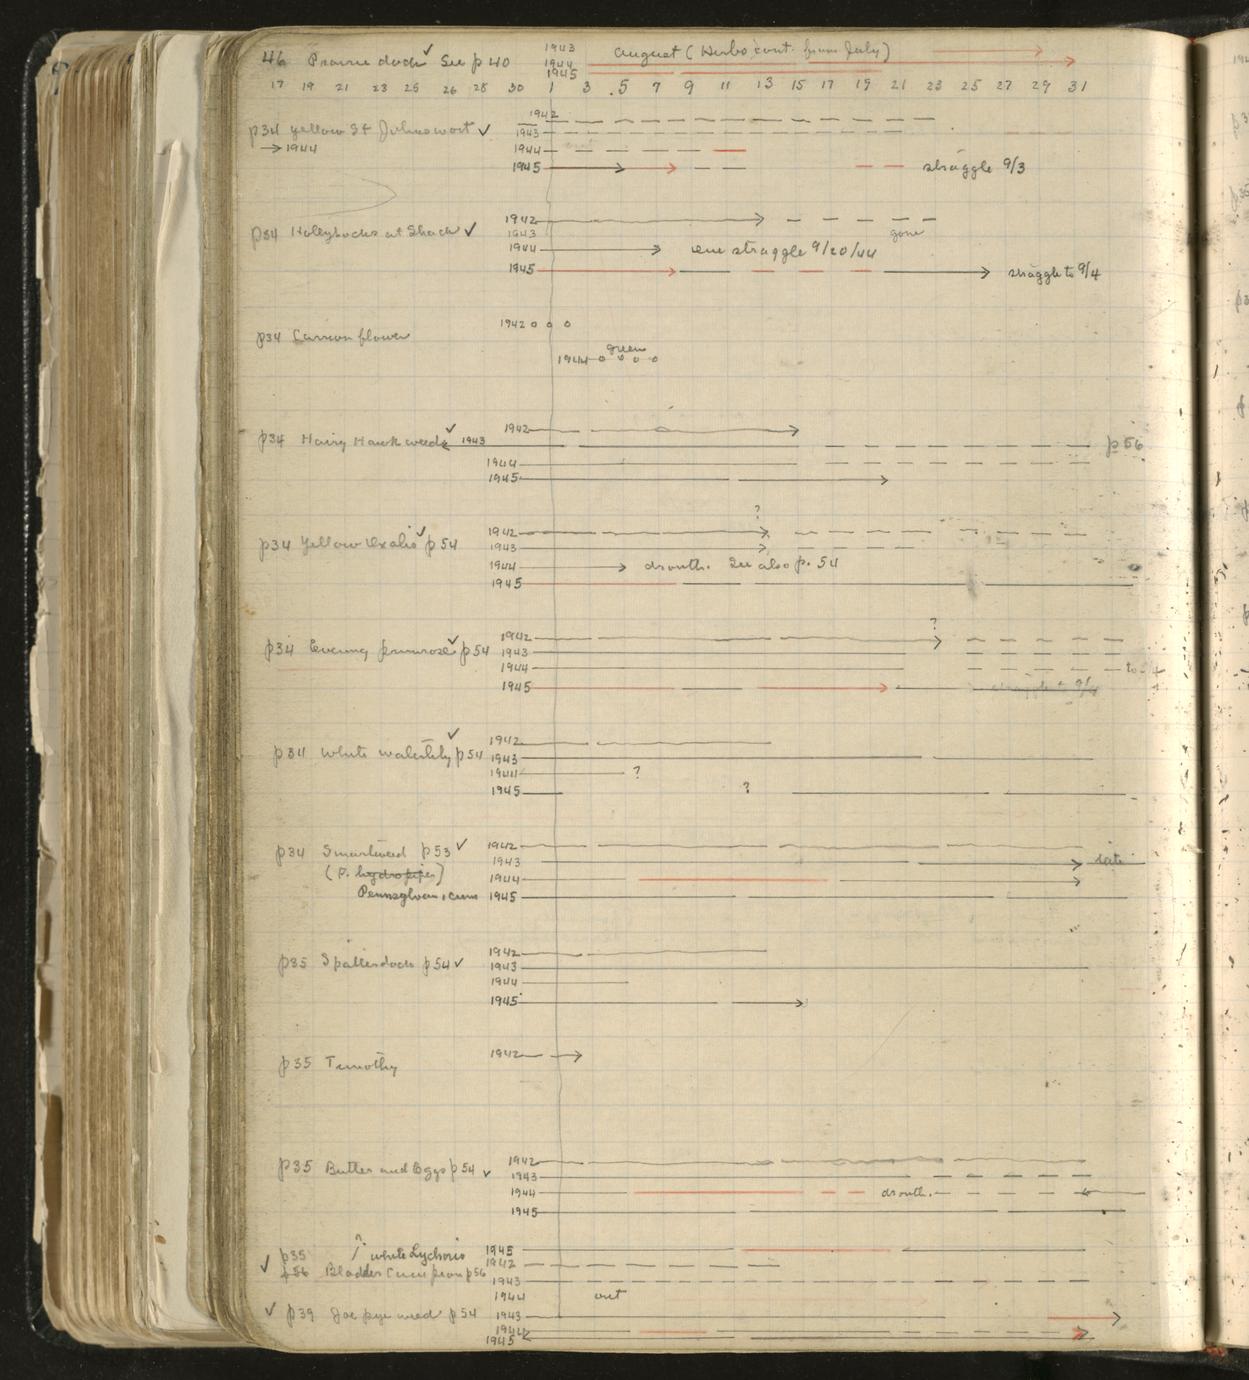 46 Prairie dock ✓ See p 40
1943
1944
1945
August (Herbs cont. from July)
17 19 21 23 25 26 28 30 1 3 5 7 9 11 13 15 17 19 21 23 25 27 29 31
p34 yellow St Johnswort ✓
→ 1944
1942
1943
1944
1945
straggle 9/3
p34 Hollyhocks at Shack ✓
1942
1943 gone
1944 one straggle 9/20/44
1945 straggle to 9/4
p34 Carrion flower
1942
green
1944
p34 Hairy Hawk weed ✓
1942
1943 p 56
1944
1945
?
p34 Yellow Oxalis ✓ p 54
1942
1943
1944 drouth. See also p. 54
1945
?
p34 Evening primrose ✓ p 54
1942
1943
1944 to
1945 straggle
p34 White waterlily ✓ p 54
1942
1943
1944 ?
1945 ?
p34 Smartweed p 53 ✓
(P. hydropiper)
Pennsylvanicum
1942
1943 late
1944
1945
p35 Spatterdock p 54 ✓
1942
1943
1944
1945
p35 Timothy
1942
p35 Butter and Eggs p 54 ✓
1942
1943
1944 drouth.
1945
p35 white Lychnis 1945
✓ p56 Bladder Campion p56
1942
1943
1944 out
✓ p39 Joe pye weed p 54
1943
1944
1945